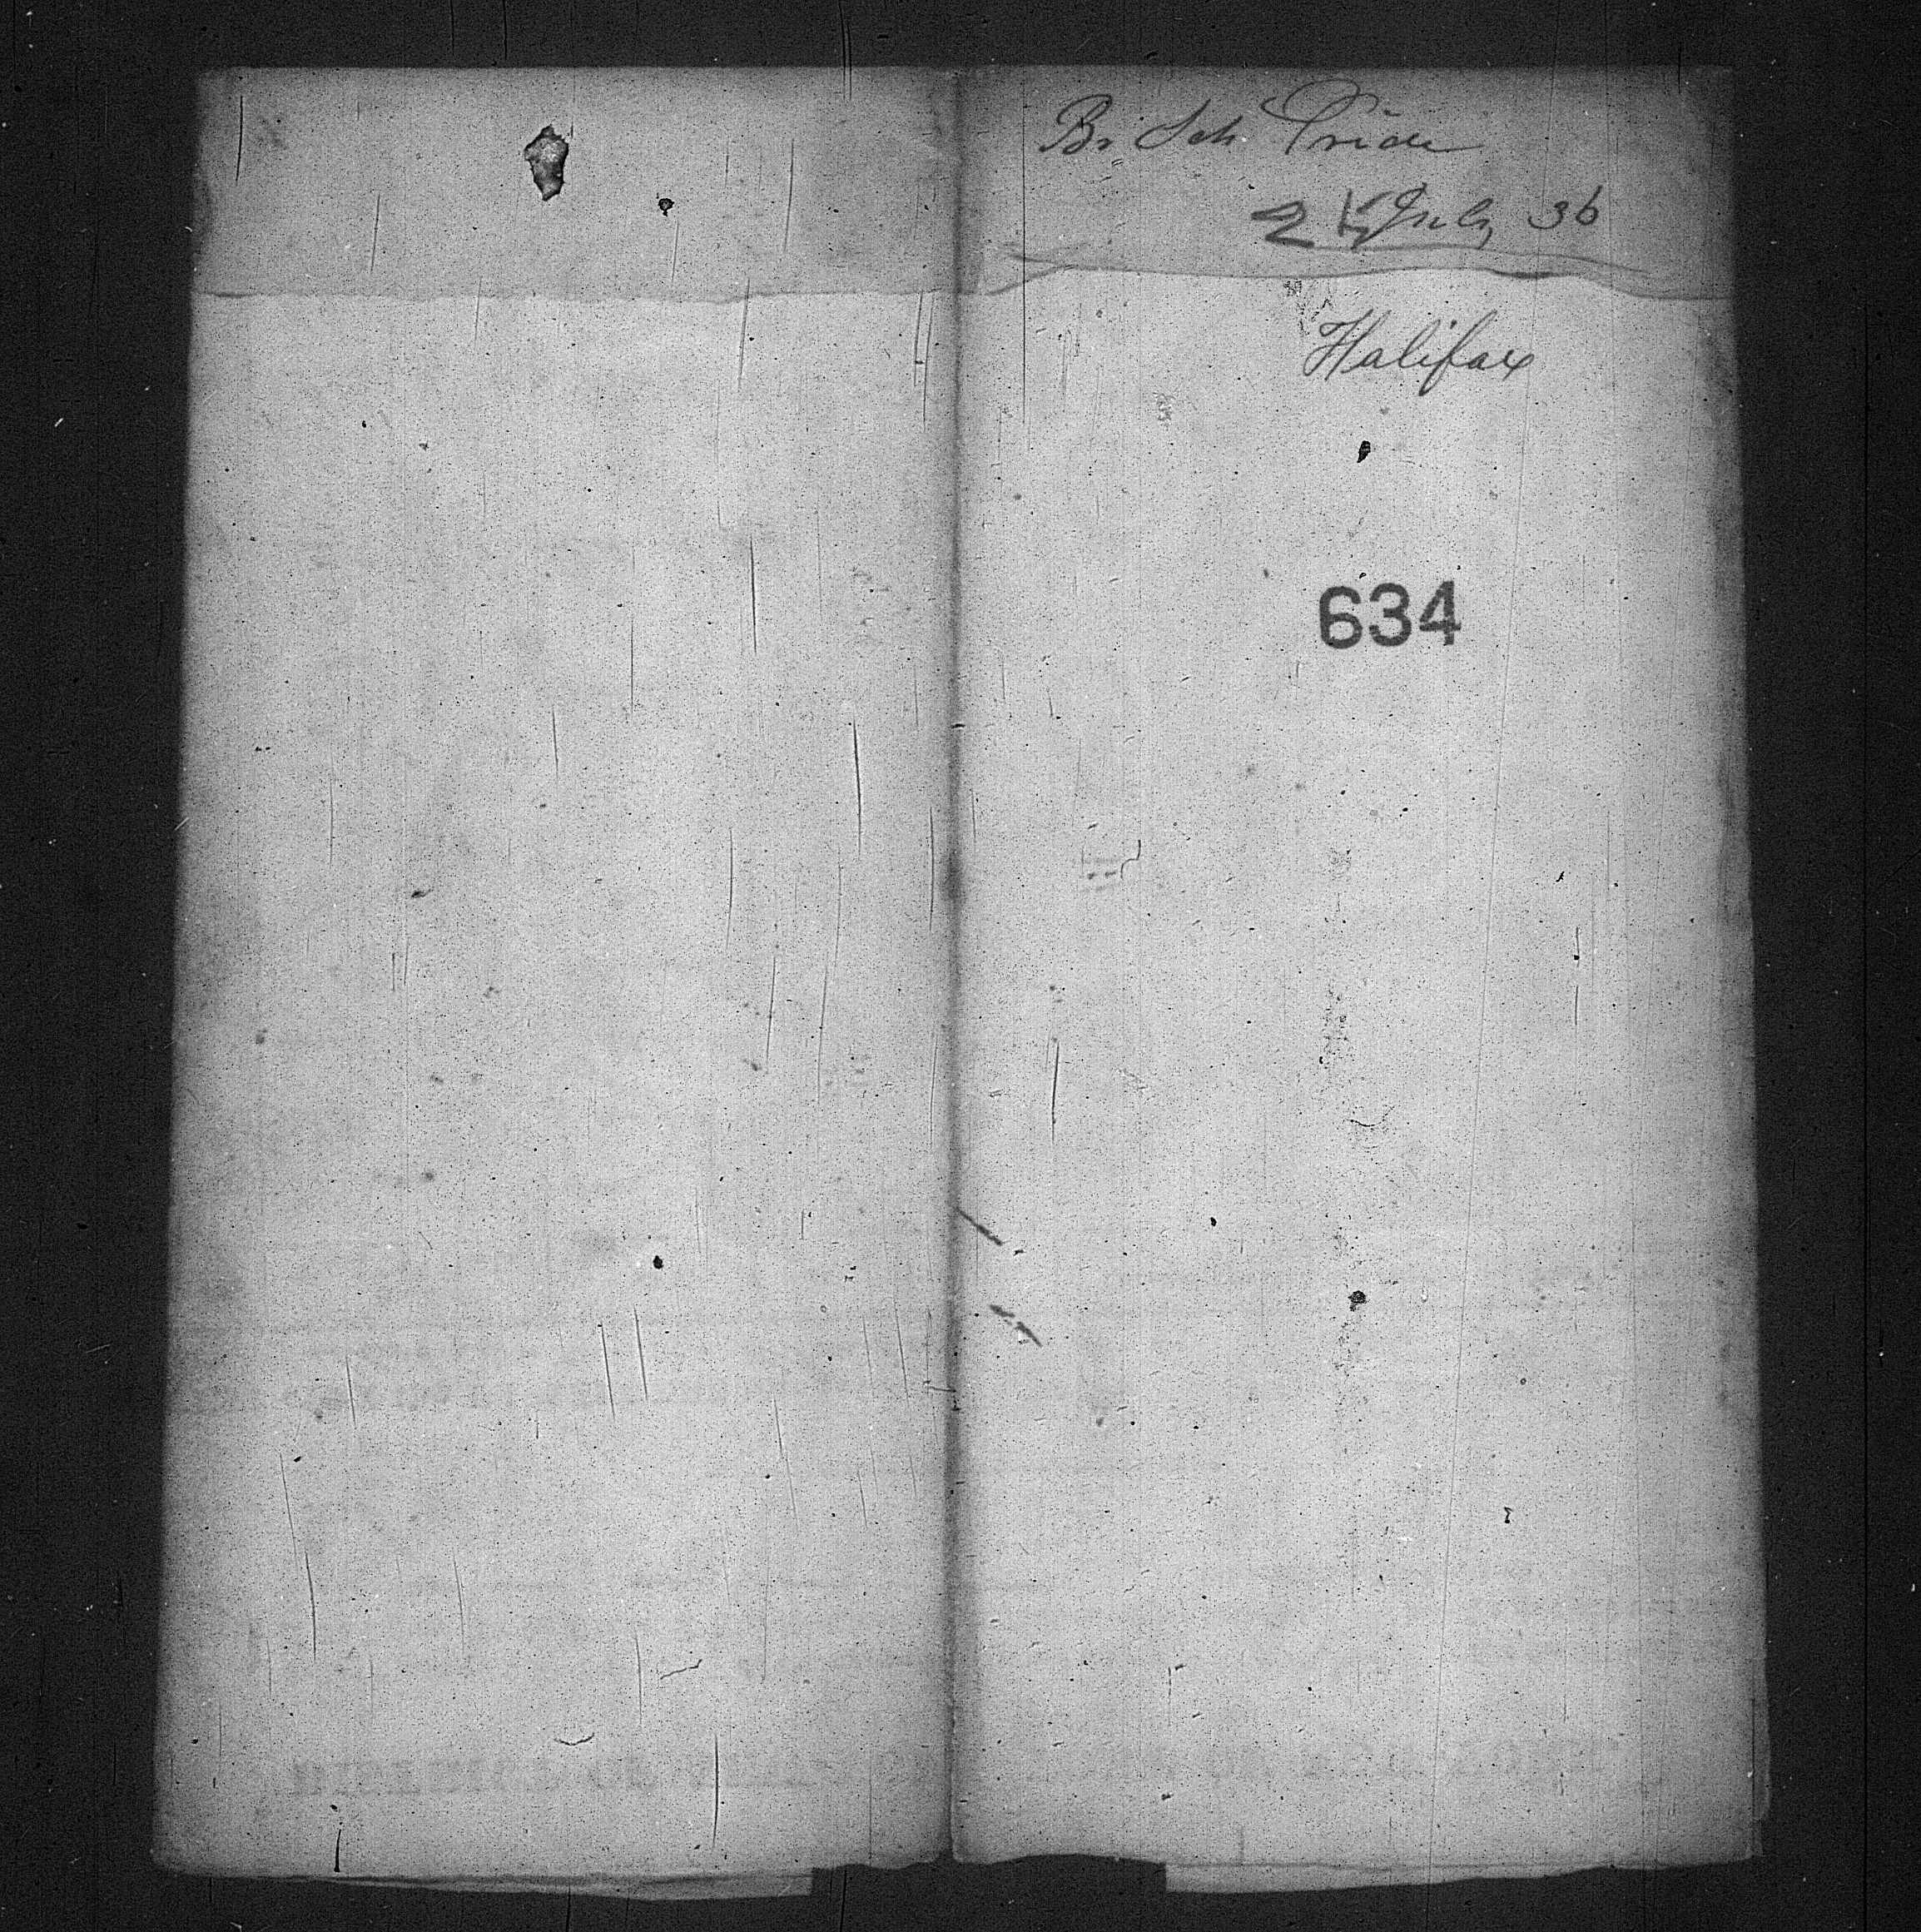 Br Sch Pride
25 July 36
Halifax
634